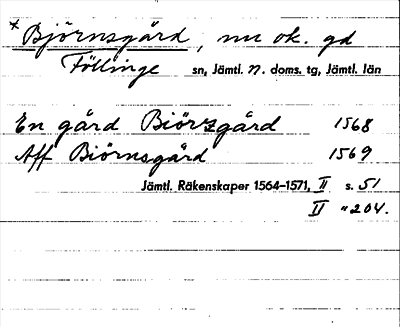 * Björnsgård, nu ok. gd
Föllinge sn, Jämtl. n. doms. tg, Jämtl. län
En gård Biörsgård 1568
Aff Biörnsgård 1569
Jämtl. Räkenskaper 1564–1571, II s. 51
II " 204.